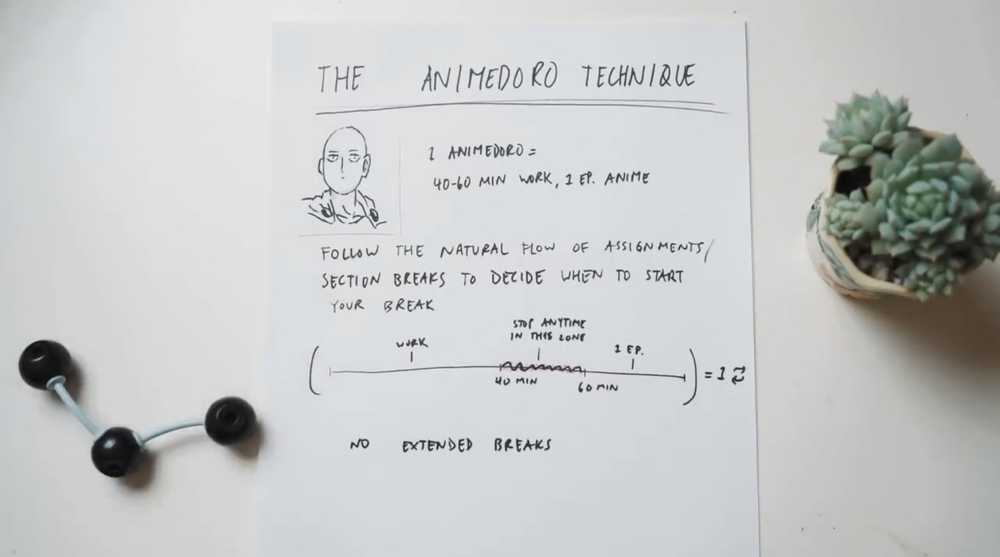 THE ANIMEDORO TECHNIQUE
1 ANIMEDORO =
40-60 MIN WORK, 1 EP. ANIME
FOLLOW THE NATURAL FLOW OF ASSIGNMENTS/
SECTION BREAKS TO DECIDE WHEN TO START
YOUR BREAK
STOP ANYTIME
IN THIS ZONE
WORK
1 EP.
40 MIN
60 MIN
= 1
NO EXTENDED BREAKS